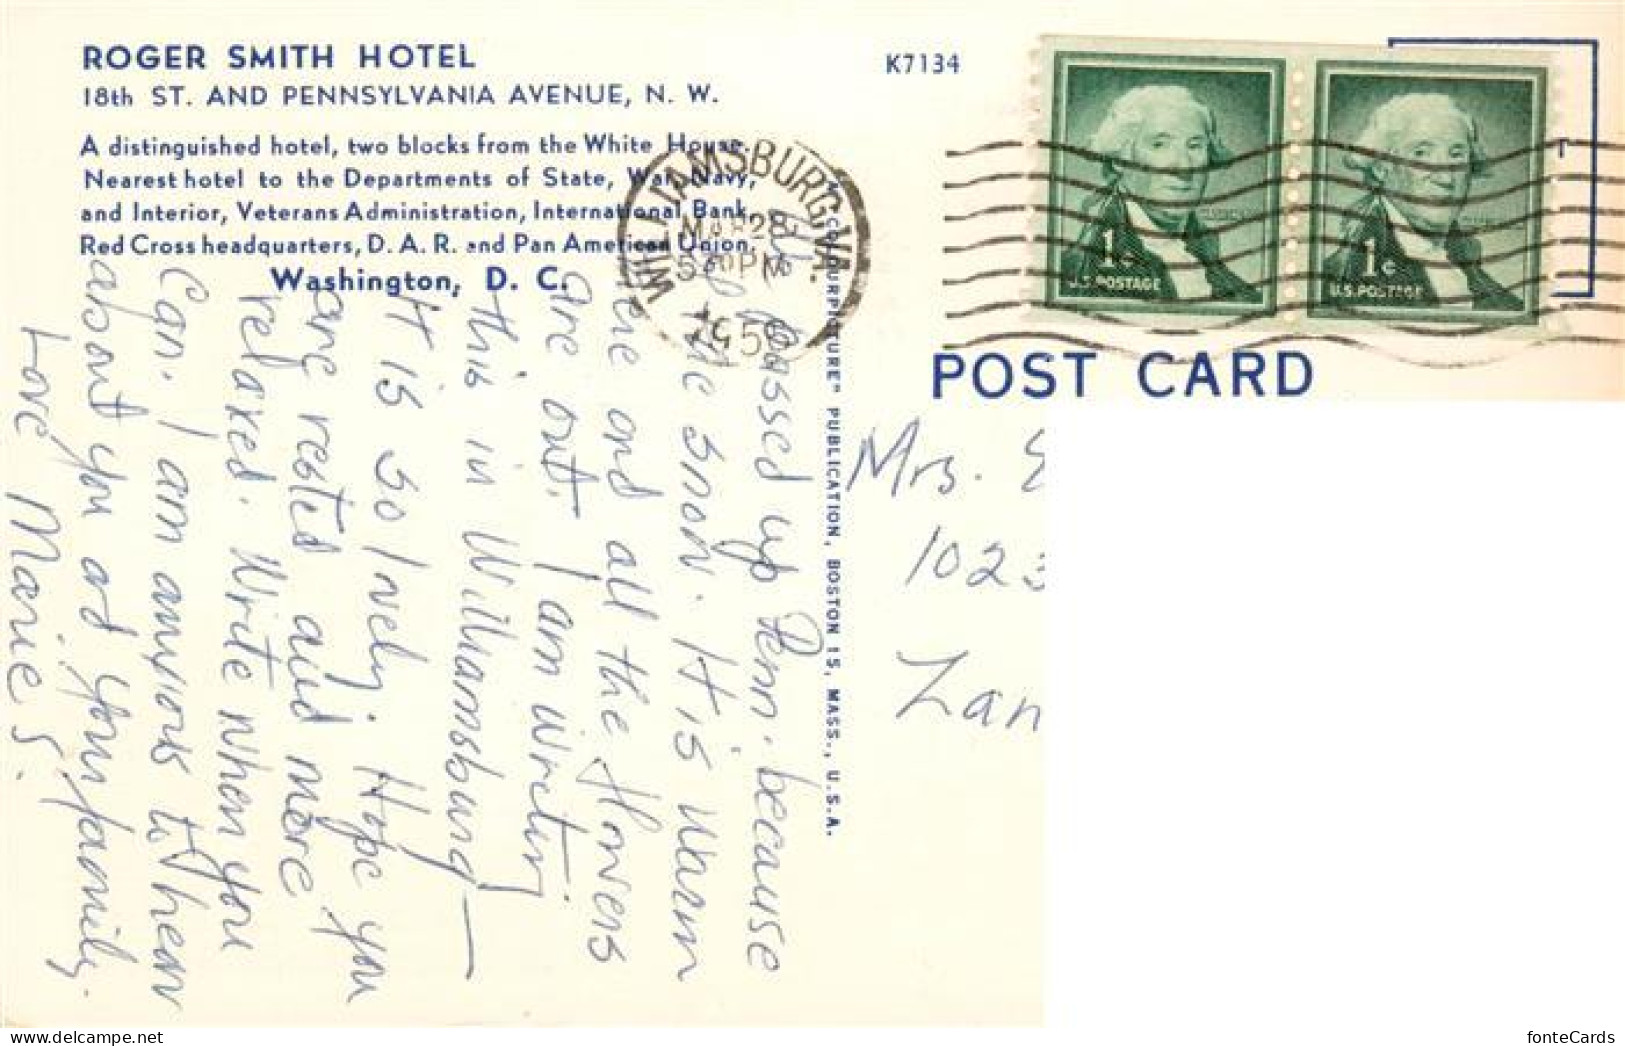 ROGER SMITH HOTEL
18th ST. AND PENNSYLVANIA AVENUE, N. W.
A distinguished hotel, two blocks from the White House.
Nearest hotel to the Departments of State, War, Navy,
and Interior, Veterans Administration, International Bank,
Red Cross headquarters, D. A. R. and Pan American Union.
Washington, D. C.
K7134
WILLIAMSBURG, VA.
MAR 28
5 PM
195
1c
U.S. POSTAGE
1c
U.S. POSTAGE
POST CARD
COLOURPICTURE" PUBLICATION, BOSTON 15, MASS., U.S.A.
passed up Penn. because
the snow. It is warm
here and all the flowers
are out. I am writing
this in Williamsburg —
It is so lovely. Hope you
are rested and more
relaxed. Write when you
can. I am anxious to hear
about you and your family.
Love Marie S.
Mrs.
102
Zan
fonteCards
delcampe.net